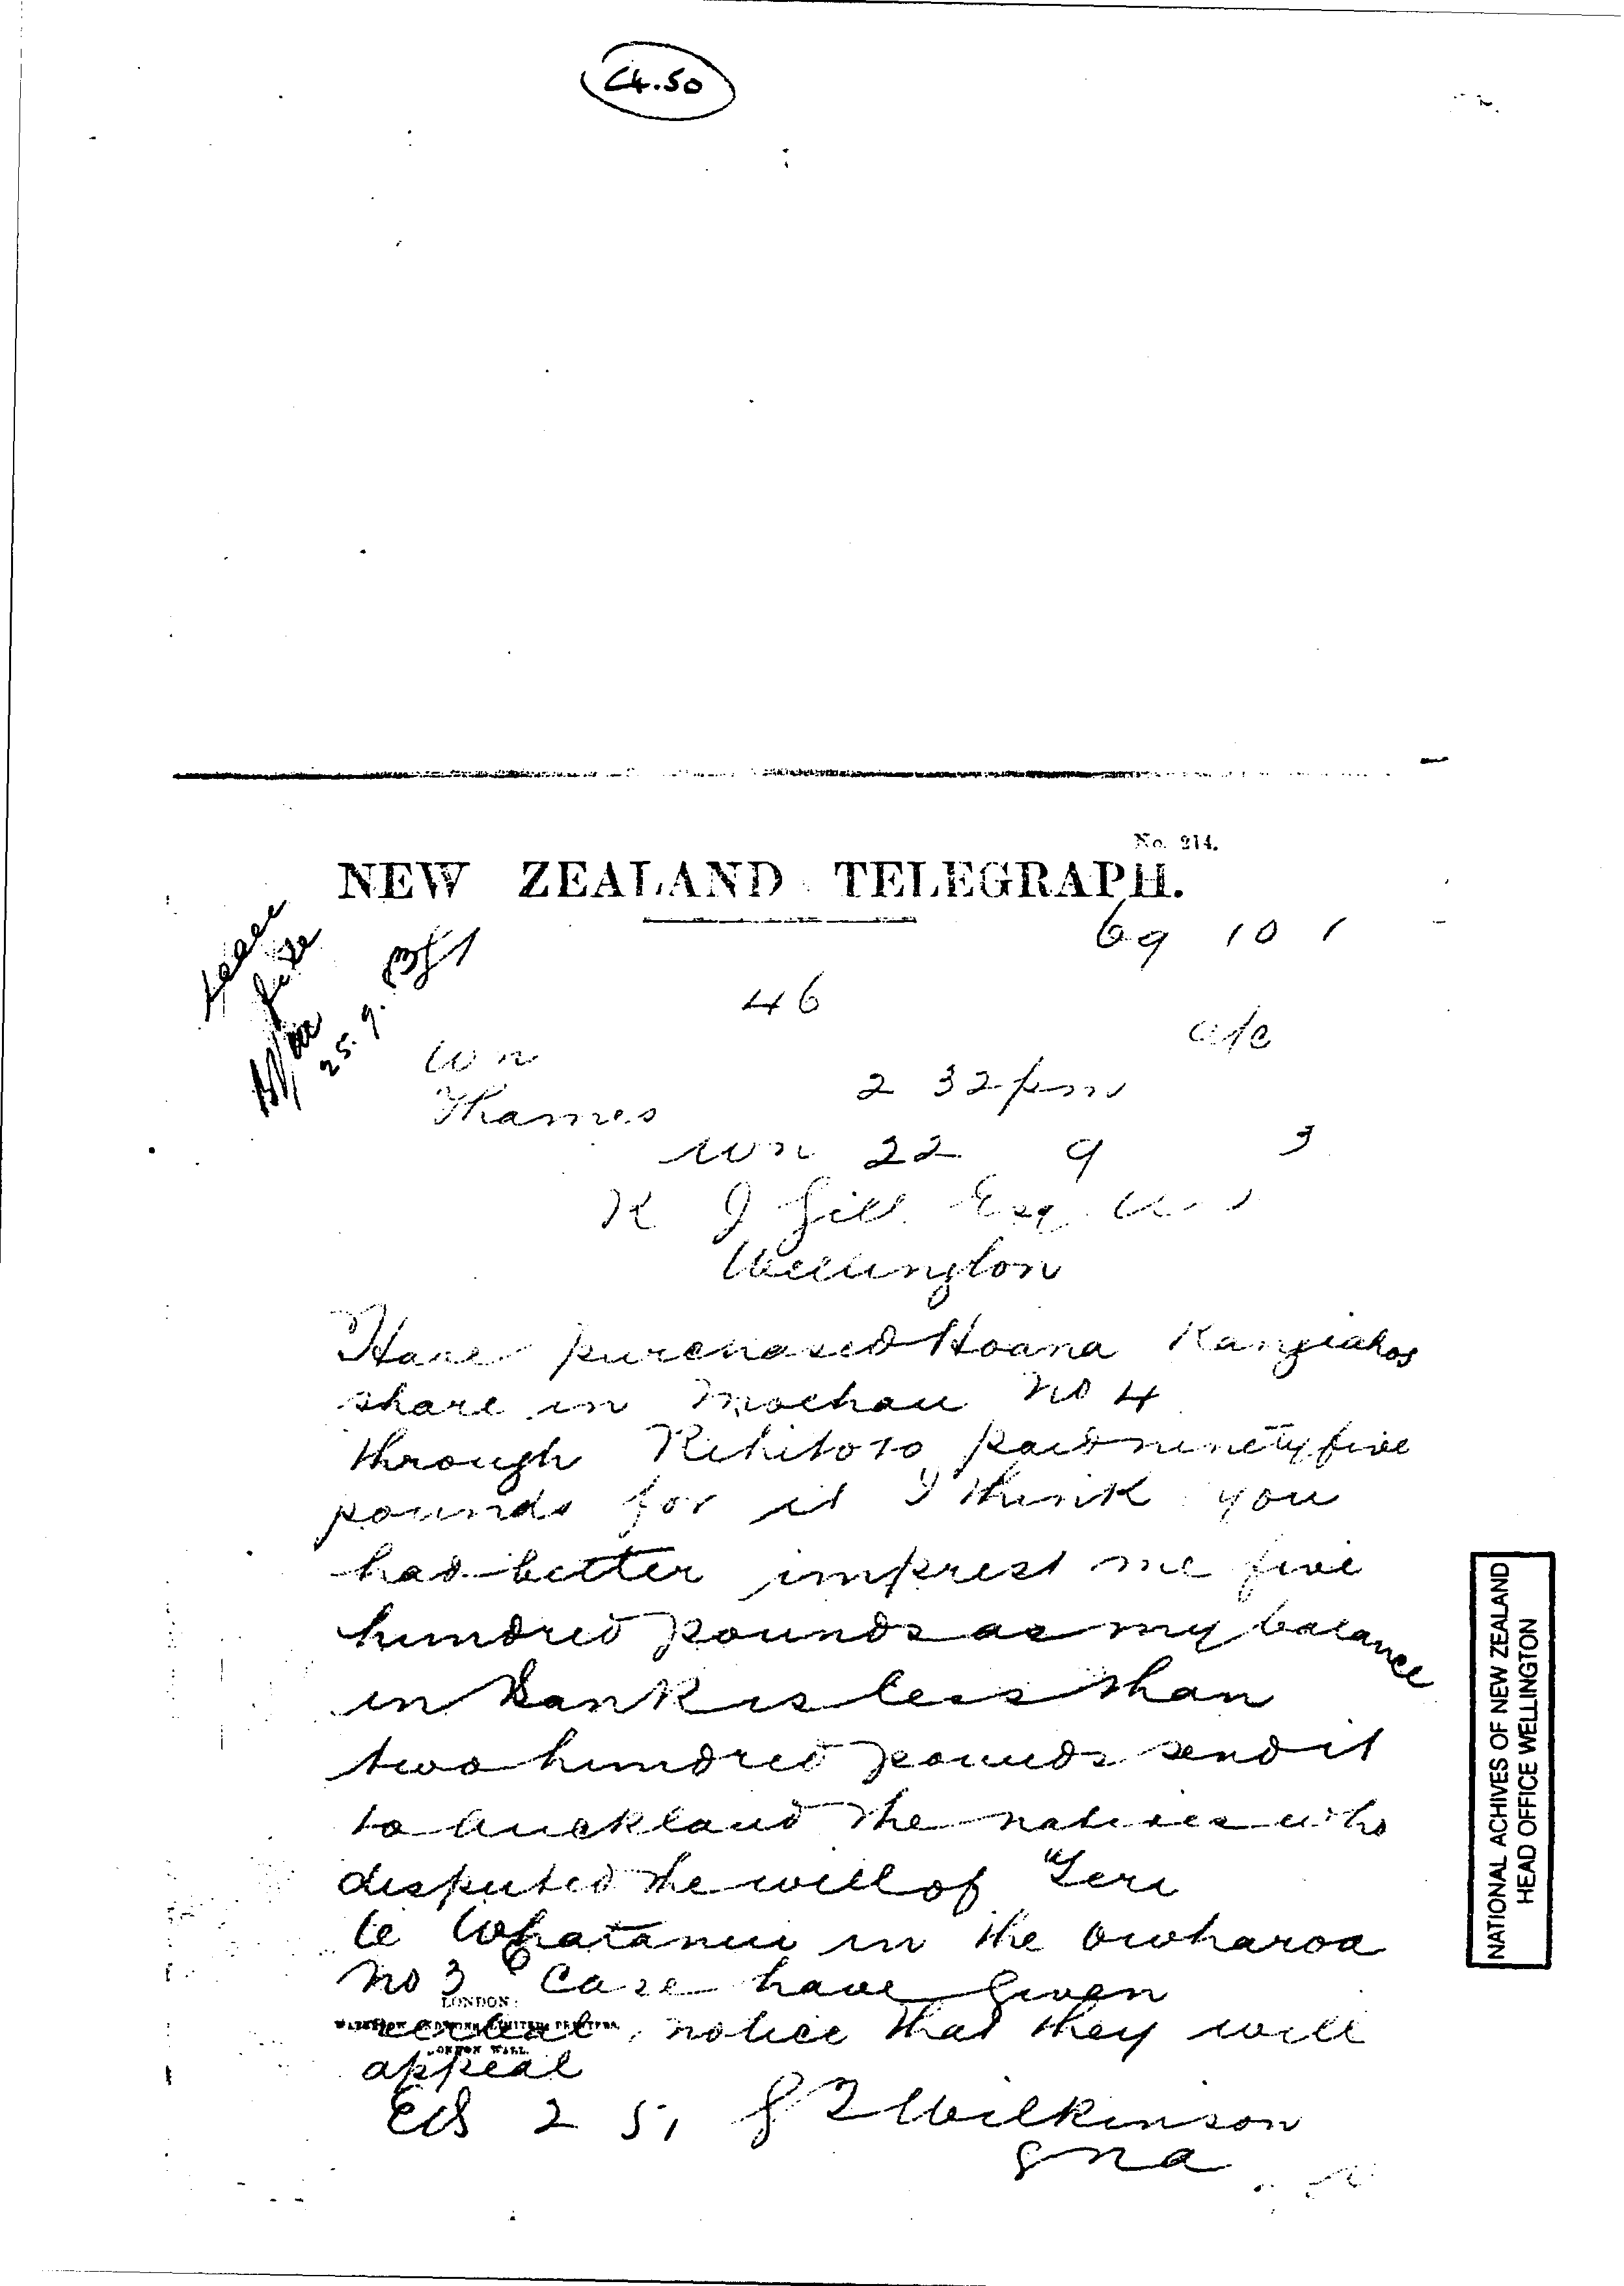 C4.50
No. 214.
NEW ZEALAND TELEGRAPH.
69 10 1
46
a/c
25.9.
Wn
Thames
2 32 pm
Wn 22 9 3
R J Gill Esq
Wellington
Have purchased Hoana Rangiahos
share in Moehau No 4
through Rihitoto paid ninety five
pounds for it I think you
had better imprest me five
hundred pounds as my balance
in Bank is less than
two hundred pounds send it
to Auckland The natives who
disputed the will of
te Whatanui in the Owharoa
No 3 Case have given
LONDON:
LIMITED PRINTERS,
verbal notice that they will
LONDON WALL
appeal
2 51 G T Wilkinson
gna
NATIONAL ACHIVES OF NEW ZEALAND
HEAD OFFICE WELLINGTON